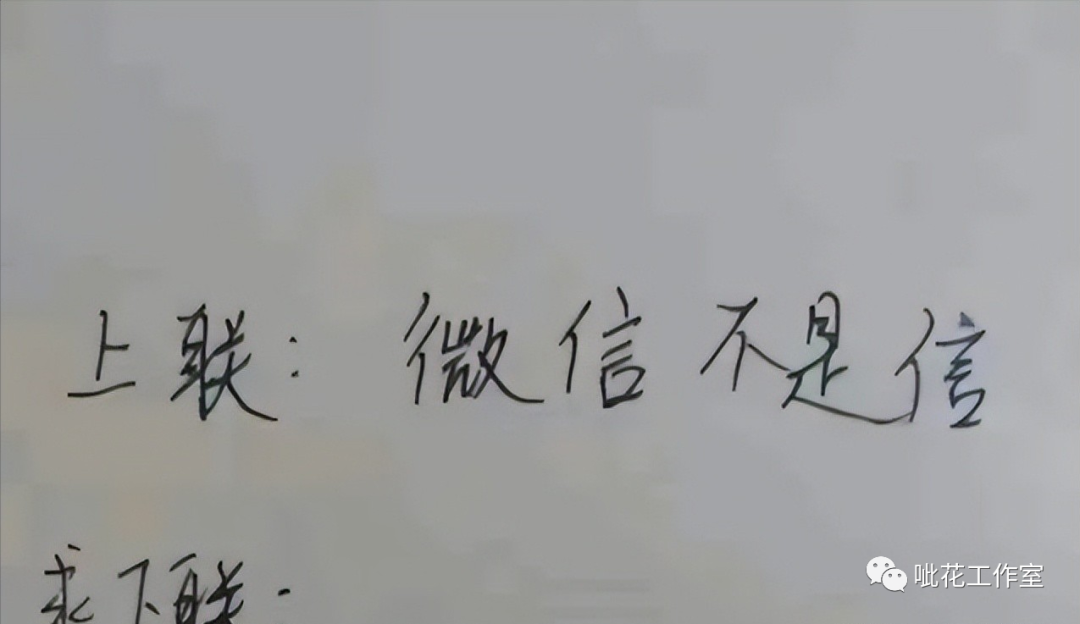 上联：微信不是信
求下联：
呲花工作室